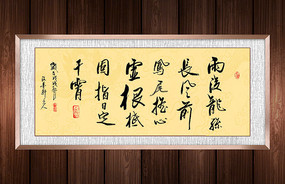 雨後龍孫
長風前
鳳尾搖心
虛根柢
固指日定
干霄